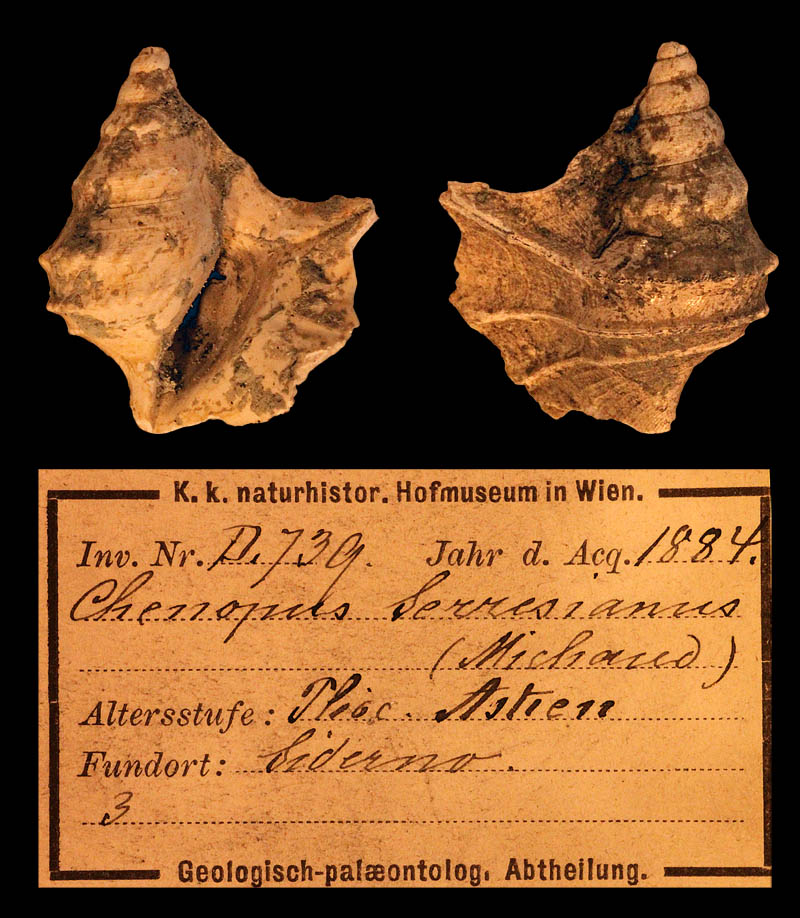 K. k. naturhistor. Hofmuseum in Wien.
Inv. Nr. D. 739. Jahr d. Acq. 1884.
Chenopus Serresianus
(Michaud)
Altersstufe: Plioc. Astien
Fundort: Siderno.
3
Geologisch-palæontolog. Abtheilung.